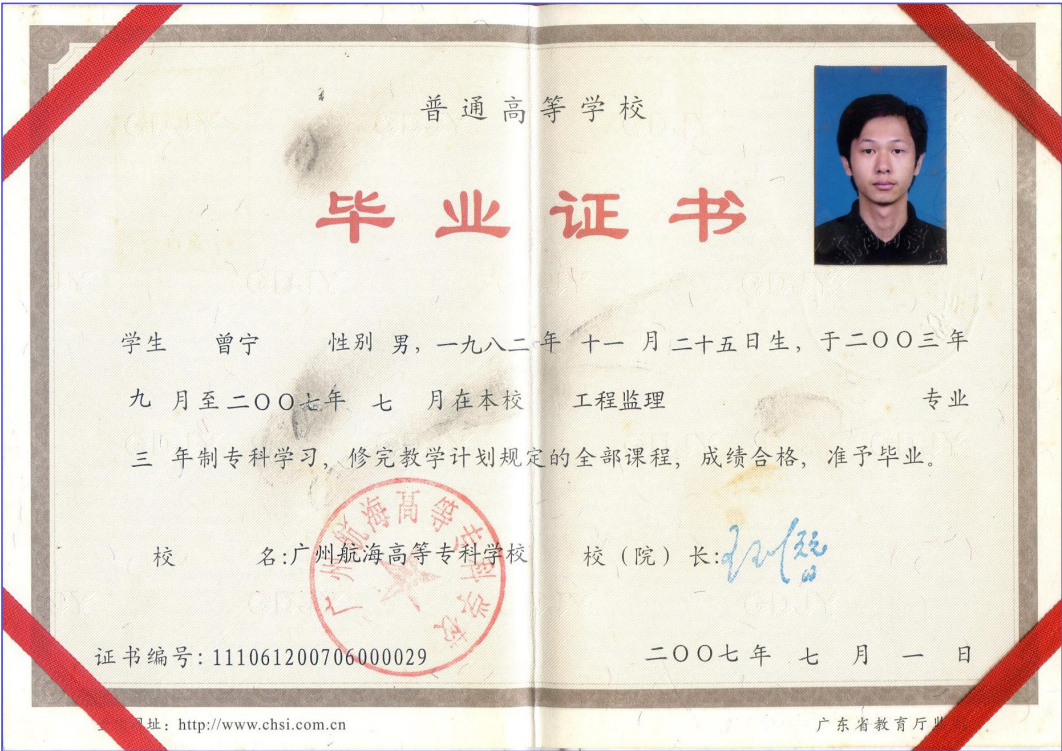 普通高等学校
毕业证书
学生 曾宁 性别 男，一九八二年 十一 月二十五日生，于二〇〇三年
九 月至二〇〇七年 七 月在本校 工程监理 专业
三 年制专科学习，修完教学计划规定的全部课程，成绩合格，准予毕业。
校 名:广州航海高等专科学校 校（院）长:
广州航海高等专科学校
证书编号: 111061200706000029 二〇〇七年 七 月 一 日
址: http://www.chsi.com.cn 广东省教育厅